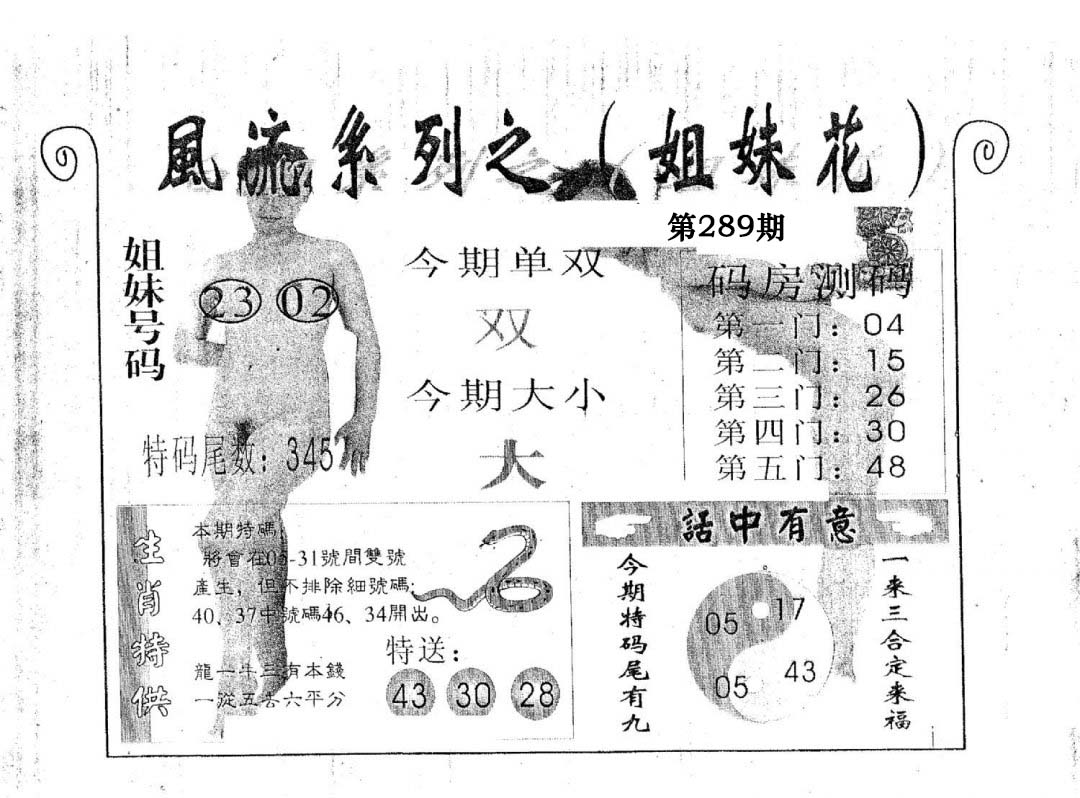 風流系列之（姐妹花）
第289期
姐妹号码
23 02
特码尾数：345
今期单双
双
今期大小
大
码房测码
第一门：04
第二门：15
第三门：26
第四门：30
第五门：48
生肖特供
本期特碼：
將會在05-31號間雙號
產生，但不排除細號碼；
40、37中號碼46、34開出。
龍一牛三有本錢
一從五去六平分
特送：
43 30 28
話中有意
今期特码尾有九
05 17
05 43
一来三合定来福